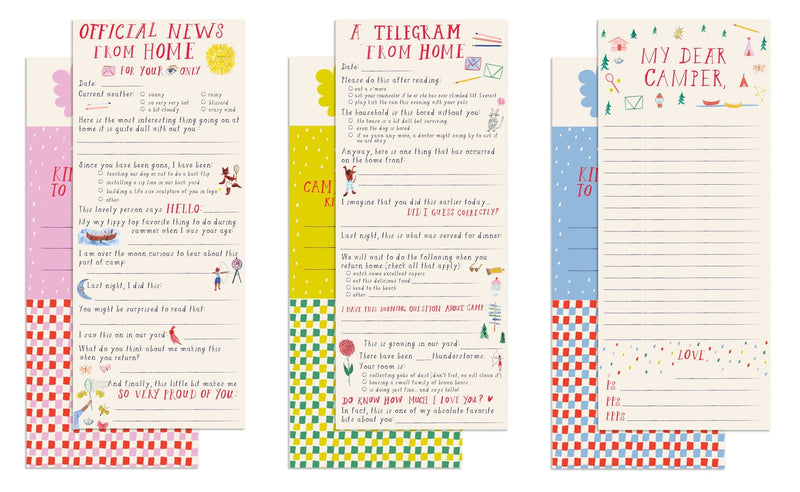 OFFICIAL NEWS
FROM HOME
FOR YOUR ONLY
Date:
Current weather:
sunny
rainy
so very very hot
blizzard
a bit cloudy
crazy wind
Here is the most interesting thing going on at
home it is quite dull with out you :
Since you have been gone, I have been:
teaching our dog or cat to do a back flip
installing a zip line in our back yard
building a life size sculpture of you in lego
other:
This lovely person says HELLO:
My my tippy top favorite thing to do during
summer when I was your age:
I am over the moon curious to hear about this
part of camp:
Last night, I did this:
You might be surprised to read that:
I saw this on in our yard:
What do you think about me making this
when you return?
And finally, this little bit makes me
SO VERY PROUD OF YOU:
KIN
TO
A TELEGRAM
FROM HOME
Date:
Please do this after reading:
eat a s'more
ask your counselor if he or she has ever climbed Mt. Everest
play kick the can this evening with your pals
The household is this bored without you:
the house is a bit dull but surviving
even the dog is bored
if we yawn any more, a doctor might swing by to ask if
we are okay
Anyway, here is one thing that has occurred
on the home front:
I imagine that you did this earlier today...
DID I GUESS CORRECTLY?
Last night, this is what was served for dinner:
We will wait to do the following when you
return home (check all that apply):
watch some excellent capers
eat this delicious food
head to the beach
other:
I HAVE THIS BURNING QUESTION ABOUT CAMP
This is growing in our yard:
There have been thunderstorms.
Your room is:
collecting gobs of dust (don't fret, we will clean it)
housing a small family of brown bears
is doing just fine... and says hello!
DO KNOW HOW MUCH I LOVE YOU?
In fact, this is one of my absolute favorite
bits about you:
CAM
K
MY DEAR
CAMPER,
LOVE,
PS.
PPS.
PPPS.
KIN
TO